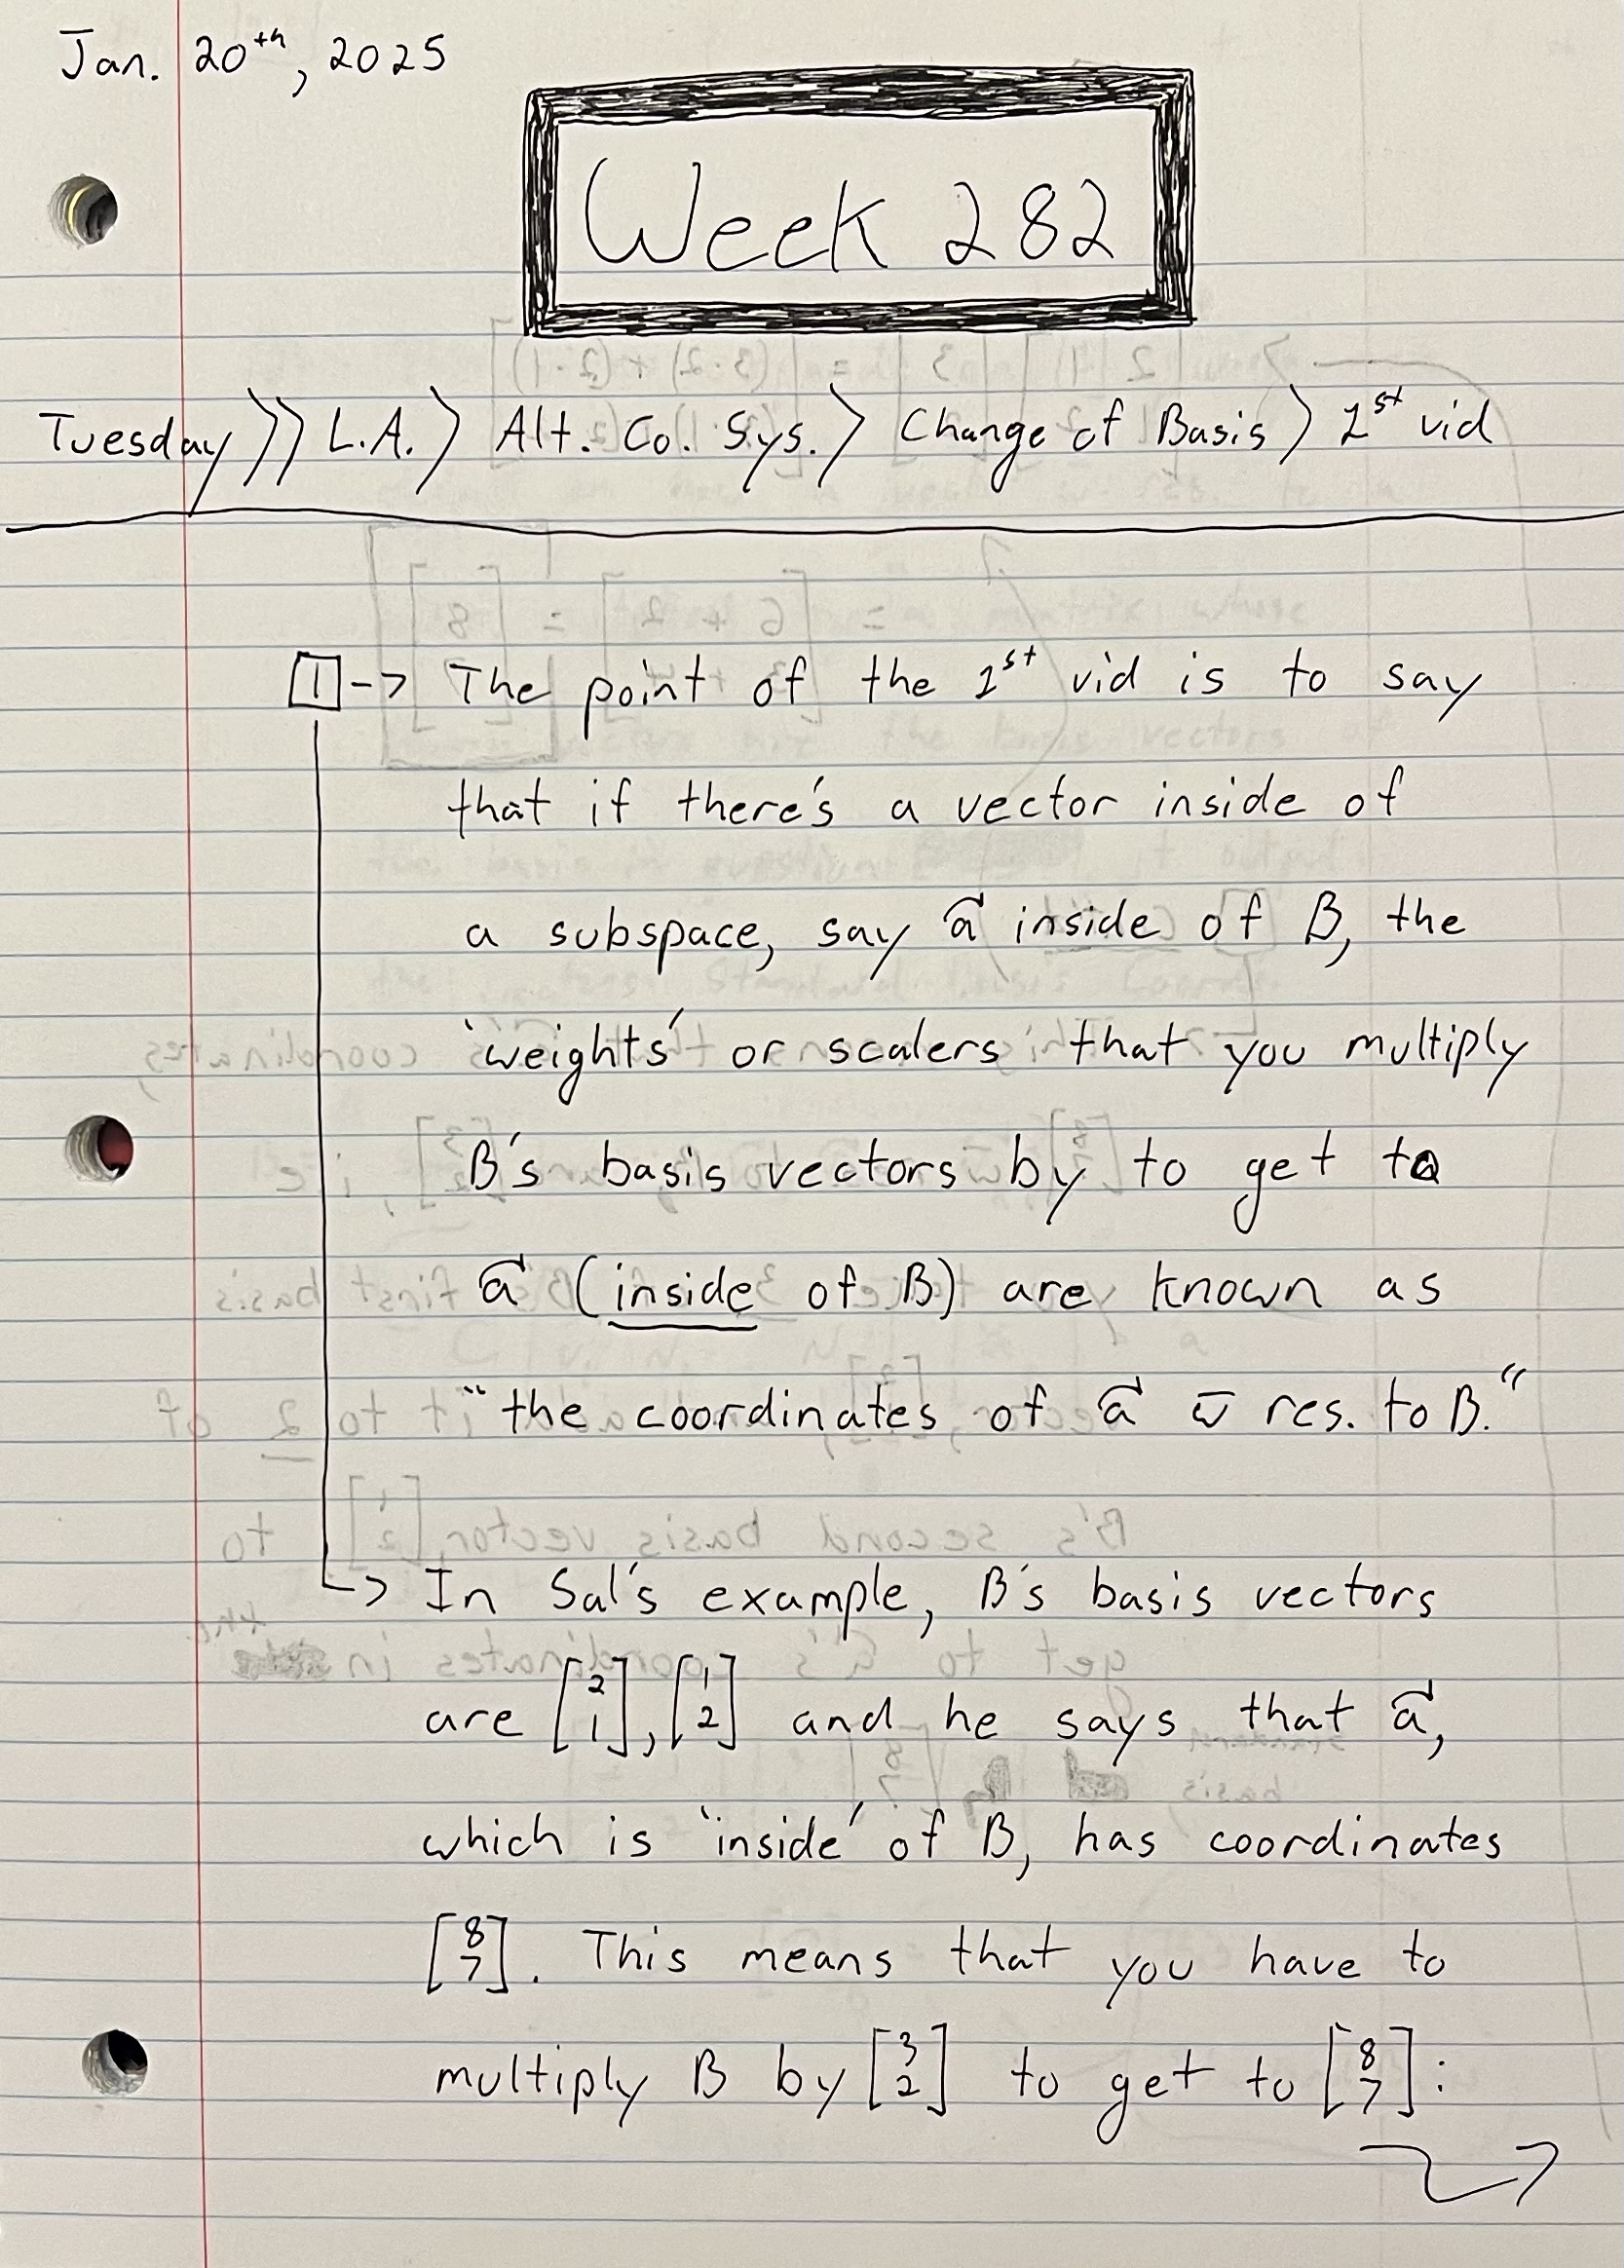 Jan. 20th, 2025
Week 282
Tuesday >> L.A. > Alt. Co. Sys. > Change of Basis > 1st vid
1 -> The point of the 1st vid is to say
that if there's a vector inside of
a subspace, say a⃗ inside of B, the
'weights' or scalers that you multiply
B's basis vectors by to get to
a⃗ (inside of B) are known as
"the coordinates of a⃗ w̄ res. to B."
-> In Sal's example, B's basis vectors
are [2 1], [1 2] and he says that a⃗,
which is 'inside' of B, has coordinates
[8 7]. This means that you have to
multiply B by [3 2] to get to [8 7]: